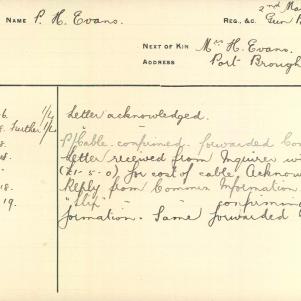 NAME P. H. Evans.
REG., &C. 2nd Ma
Gun B
NEXT OF KIN Mrs H. Evans.
ADDRESS Port Brough
6. 1/4 Letter acknowledged.
8. Further 1/2
P/Cable confirmed forwarded Co
8. Letter received from Inquirer wi
(£1-5-0) for cost of cable Acknow
18. Reply from Common Information
19. "slip" - confirming
formation. Same forwarded t